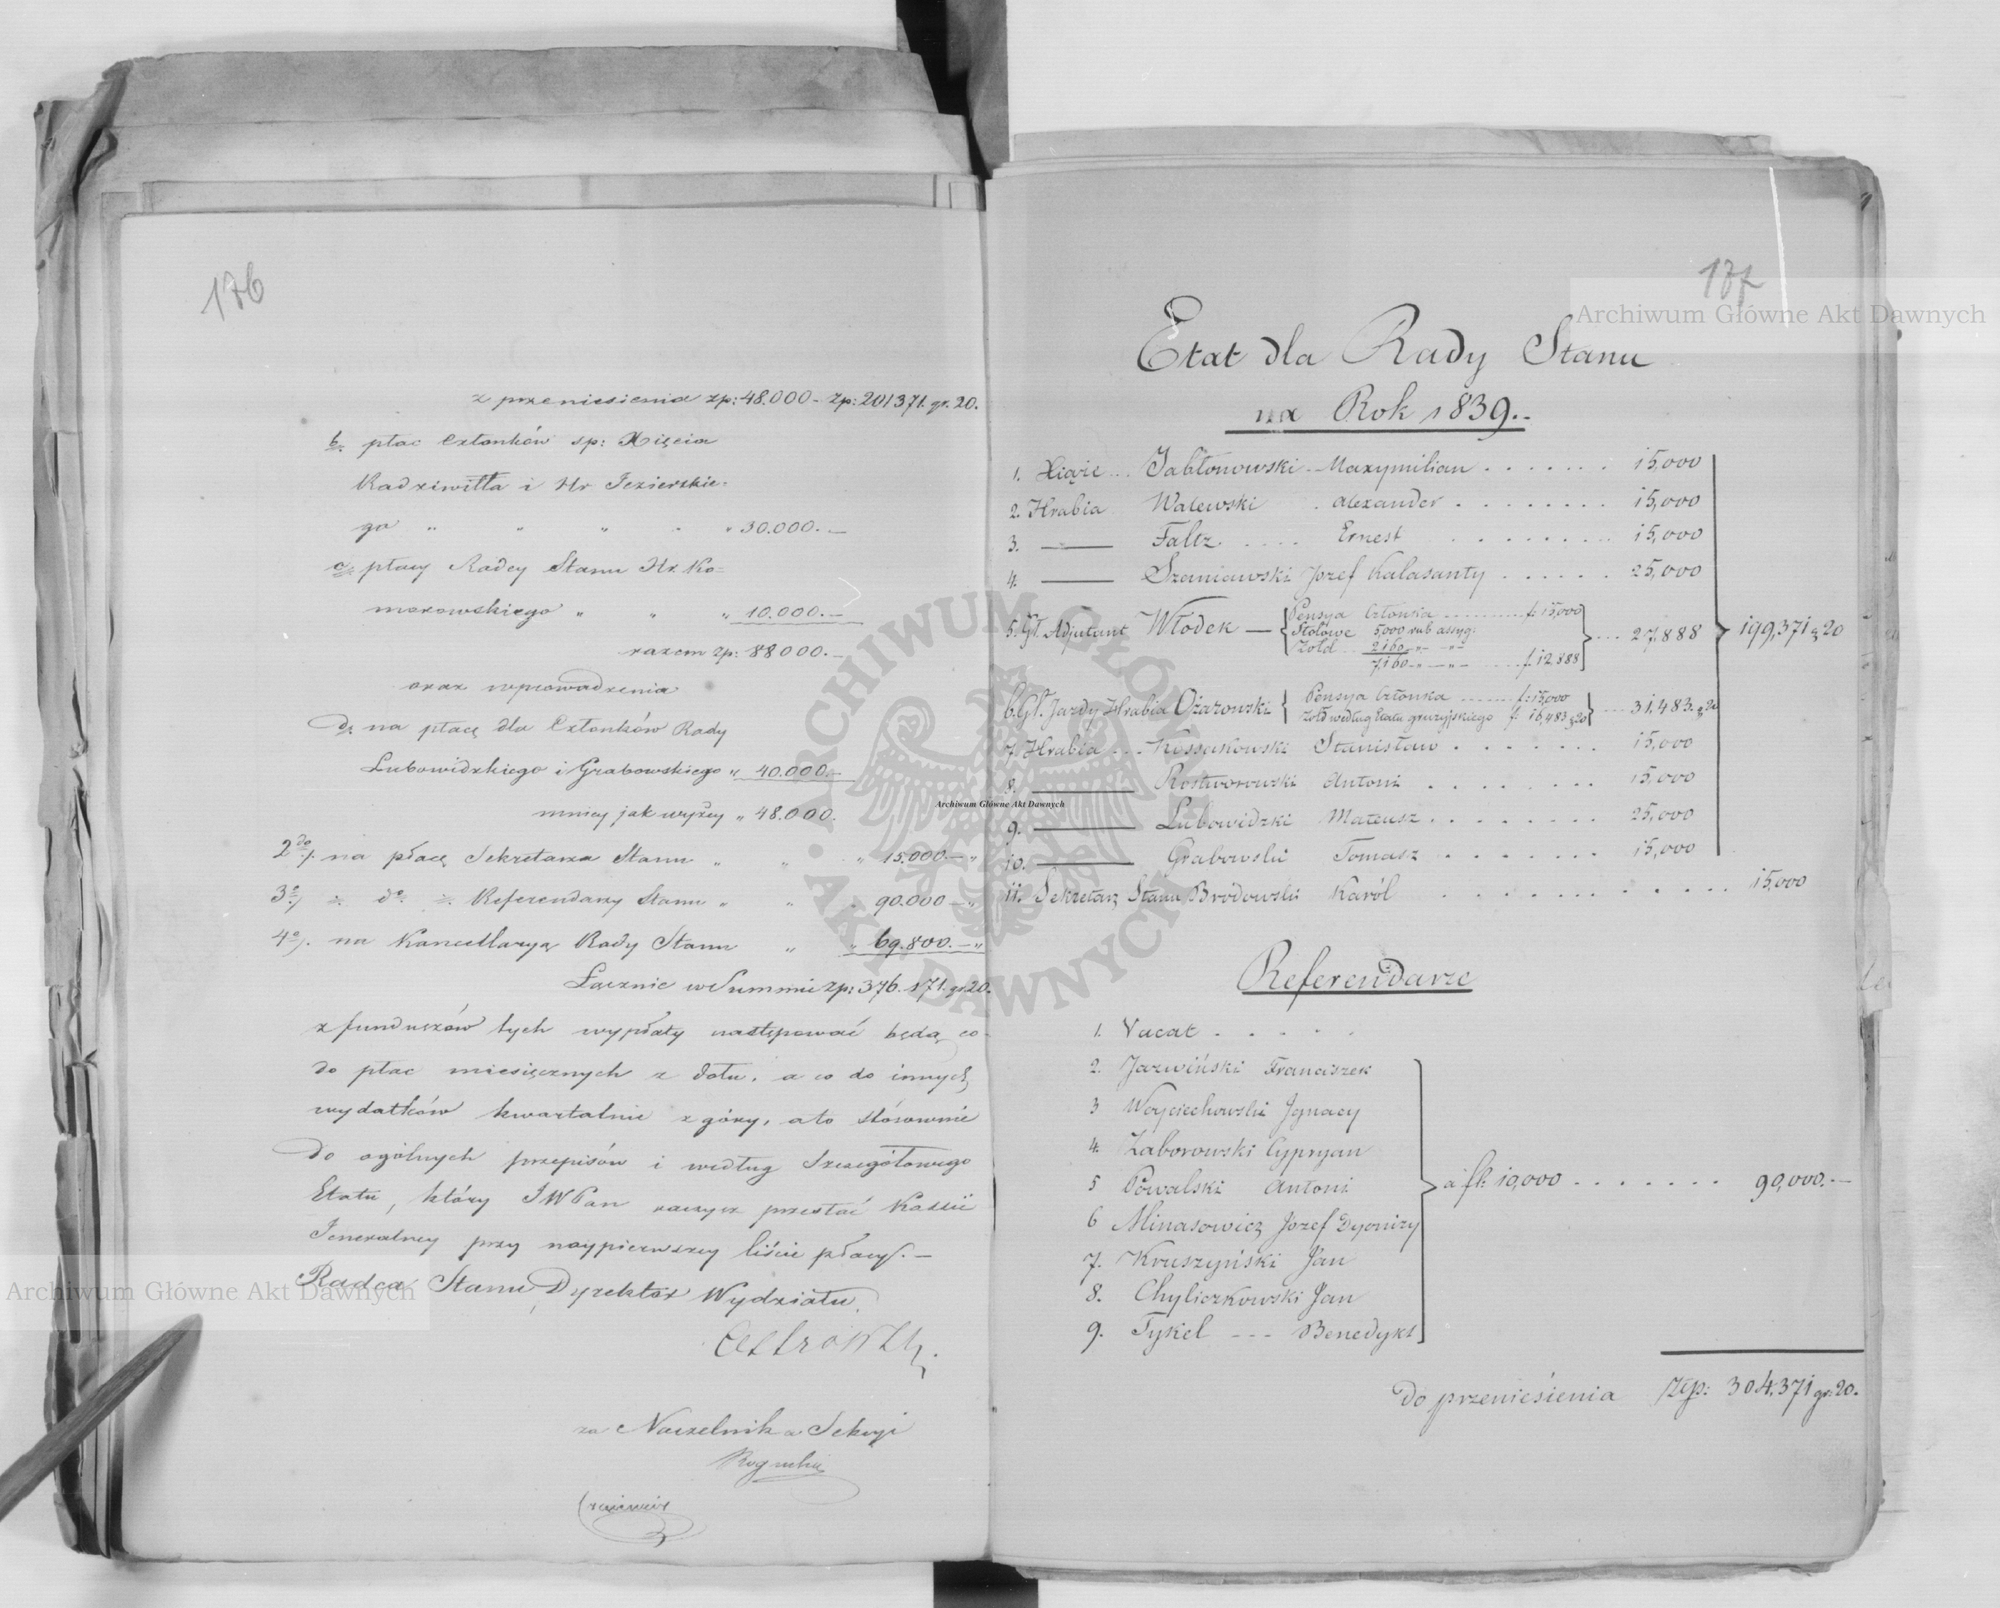 176
z przeniesienia zp: 48.000 - zp: 201371. gr. 20.
b. płac Członków sp: Xięcia
Radziwiłła i Hr Jezierskie-
go " " " " " 30.000. —
c. płacy Radcy Stanu Hr. Ko=
morowskiego " " " 10.000. —
razem zp: 88000. —
oraz wprowadzenia
d. na płacę dla Członków Rady
Lubowidzkiego i Grabowskiego " 40.000. —
mniey jak wyżey " 48.000.
2do/. na płacę Sekretarza Stanu " " " 15.000 — "
3o/ = do = Referendarzy Stanu " " " 90.000 — "
4o/. na Kancellaryą Rady Stanu " " 69.800. — "
Łącznie w Summie zp: 376.171. gr. 20.
z funduszów tych wypłaty następować będą co-
do płac miesięcznych z dołu, a co do innych
wydatków kwartalnie z góry, a to stósownie
do ogólnych przepisów i według Szczegółowego
Etatu, który JWPan raczysz przesłać Kassie
Jeneralney przy naypierwszey liście płacy. —
Radca Stanu, Dyrektor Wydziału,
za Naczelnika Sekcyi
177
Etat dla Rady Stanu
na Rok 1839.
1. Xiąże ... Jabłonowski - Maxymilian . . . . . . . 15,000
2. Hrabia Walewski . Alexander . . . . . . . . 15,000
3. —— Faltz . . . . . Ernest . . . . . . . . . 15,000
4. —— Szaniawski Józef Kalasanty . . . . . 25,000
5. Gł. Adjutant Włodek — { Pensya Członka . . . . . . f. 15,000
Stołowe 5,000 rub assyg:
Żołd 2160 " — " —
7,160 " — " — . . . . f. 12,888 } . . . 27,888 } 199,371 g 20
6. Gł. Jazdy Hrabia Ożarowski { Pensya Członka . . . . . . f. 15,000
żołd według Etatu gruzyjskiego f. 16,483 g 20 } . . . 31,483. g 20
7. Hrabia . . . Kossakowski Stanisław . . . . . . . 15,000
8. —— Rostworowski Antoni . . . . . . . 15,000
9. —— Lubowidzki Mateusz . . . . . . . . 25,000
10. —— Grabowski Tomasz . . . . . . . 15,000
11. Sekretarz Stanu Brodowski Karól . . . . . . . . . . 15,000
Referendarze
1. Vacat . . . . .
2. Jarwiński Franciszek
3 Woyciechowski Ignacy
4. Zaborowski Cypryan
5 Powalski Antoni } a fl: 10,000 . . . . . . . 90,000. —
6 Minasowicz Józef Dyonizy
7. Kruszyński Jan
8. Chyliczkowski Jan
9. Tykel - - - Benedykt
Do przeniesienia Złp: 304.371 gr. 20.
Archiwum Główne Akt Dawnych
Archiwum Główne Akt Dawnych
Archiwum Główne Akt Dawnych
ARCHIWUM GŁÓWNE AKT DAWNYCH